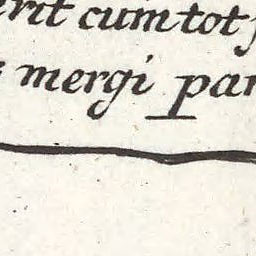 erit cum tot
mergi par